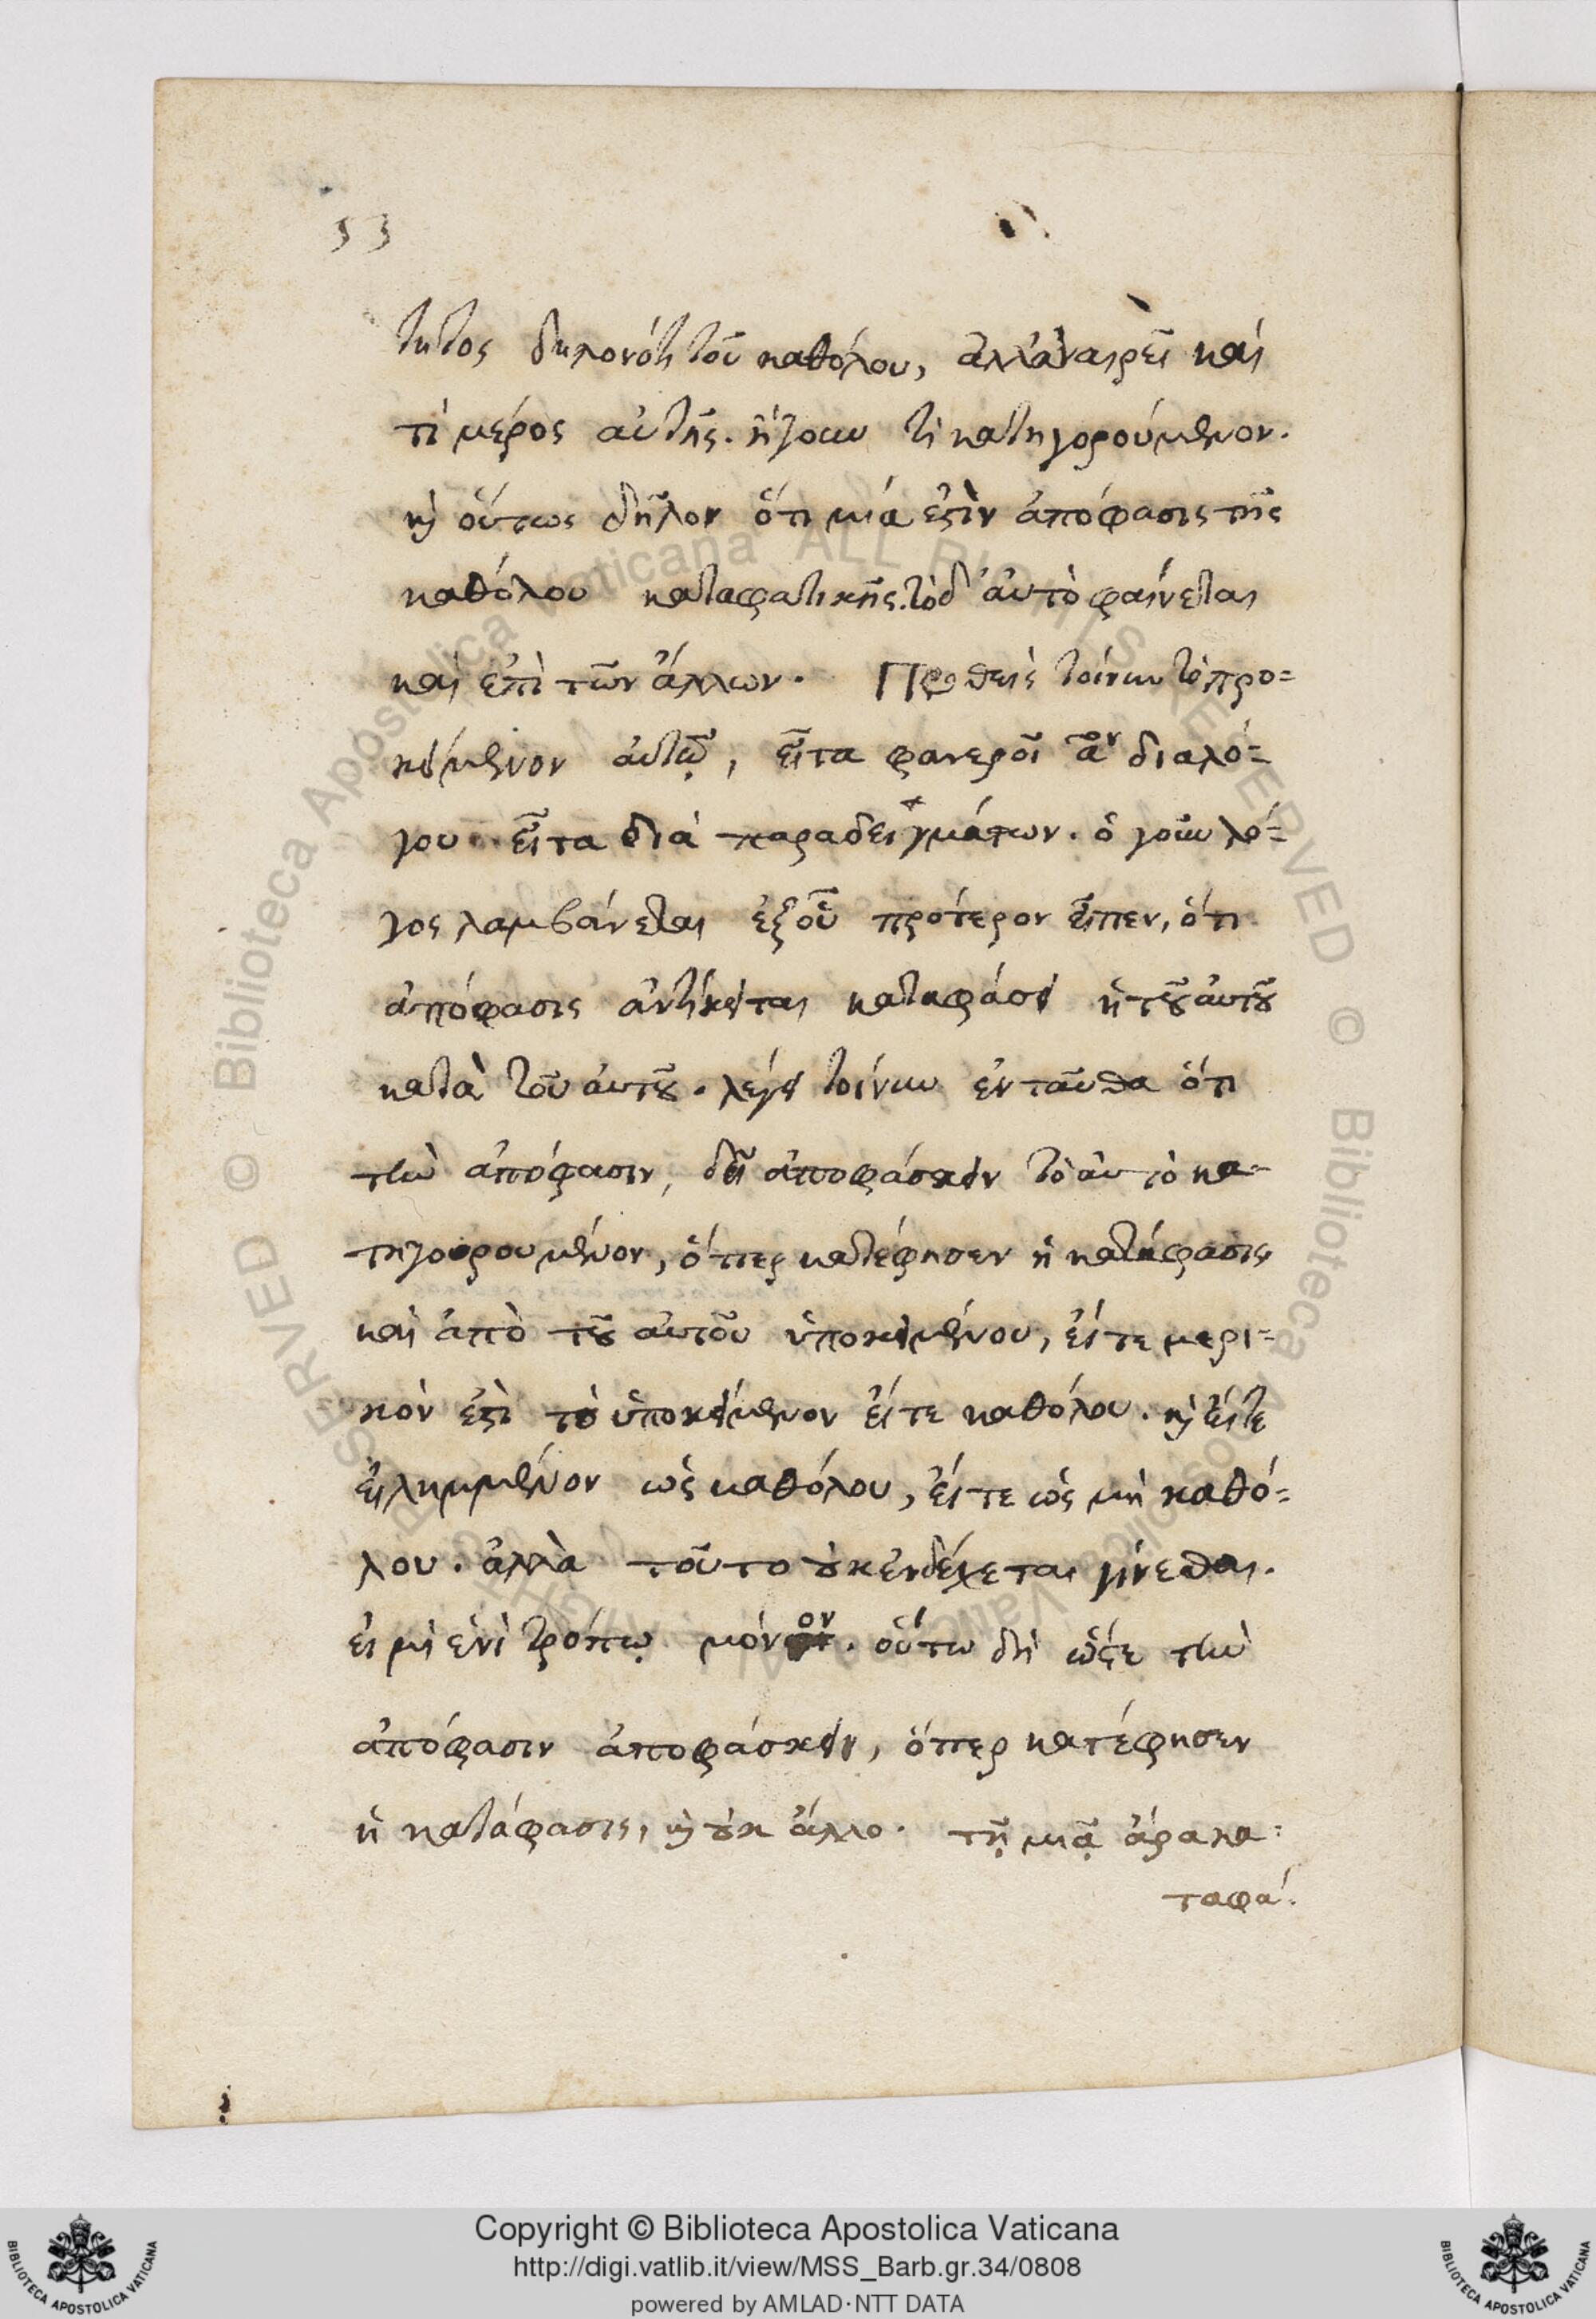 53
τητος δηλονότι τοῦ καθόλου, ἀλλ' ἀναιρεῖ καὶ
τὶ μέρος αὐτῆς. ἤγουν τὶ κατηγορούμενον.
κ̀ οὕτως δῆλον ὅτι μιά ἐστὶν ἀπόφασις τῆς
καθόλου καταφατικῆς. τὸ δ' ἀυτὸ φαίνεται
καὶ ἐπὶ τῶν ἄλλων. Προθεὶς τοίνυν τὸ προ=
κείμενον ἀυτῷ, εἶτα φανεροῖ διαλό=
γου εἶτα διὰ παραδειγμάτων. ὁ γοῦν λό=
γος λαμβάνεται ἐξοὗ πρότερον εἶπεν, ὅτι
ἀπόφασις ἀντίκειται καταφάσει ἡ τοῦ ἀυτοῦ
κατὰ τοῦ ἀυτοῦ. λέγει τοίνυν ἐνταῦθα ὅτι
τὴν ἀπόφασιν, δεῖ ἀποφάσκειν τὸ ἀυτὸ κα=
τηγορουμένον, ὅπερ κατέφησεν ἡ κατάφασις
καὶ ἀπὸ τοῦ ἀυτοῦ ὑποκειμένου, εἴτε μερι=
κὸν ἐστὶ τὸ ὑποκείμενον εἴτε καθόλου. κ̀ εἴτε
εἰλημμένον ὡς καθόλου, εἴτε ὡς μὴ καθό=
λου. ἀλλὰ τοῦτο οὐκ ἐνδέχεται γίνεσθαι.
εἰ μὴ ἑνὶ τρόπῳ μόνον. οὕτω δὴ ὥστε τὴν
ἀπόφασιν ἀποφάσκειν, ὅπερ κατέφησεν
ἡ κατάφασις, κ̀ οὐκ ἄλλο. τῇ μιᾷ ἄρα κα=
ταφά.
Copyright © Biblioteca Apostolica Vaticana
http://digi.vatlib.it/view/MSS_Barb.gr.34/0808
powered by AMLAD·NTT DATA